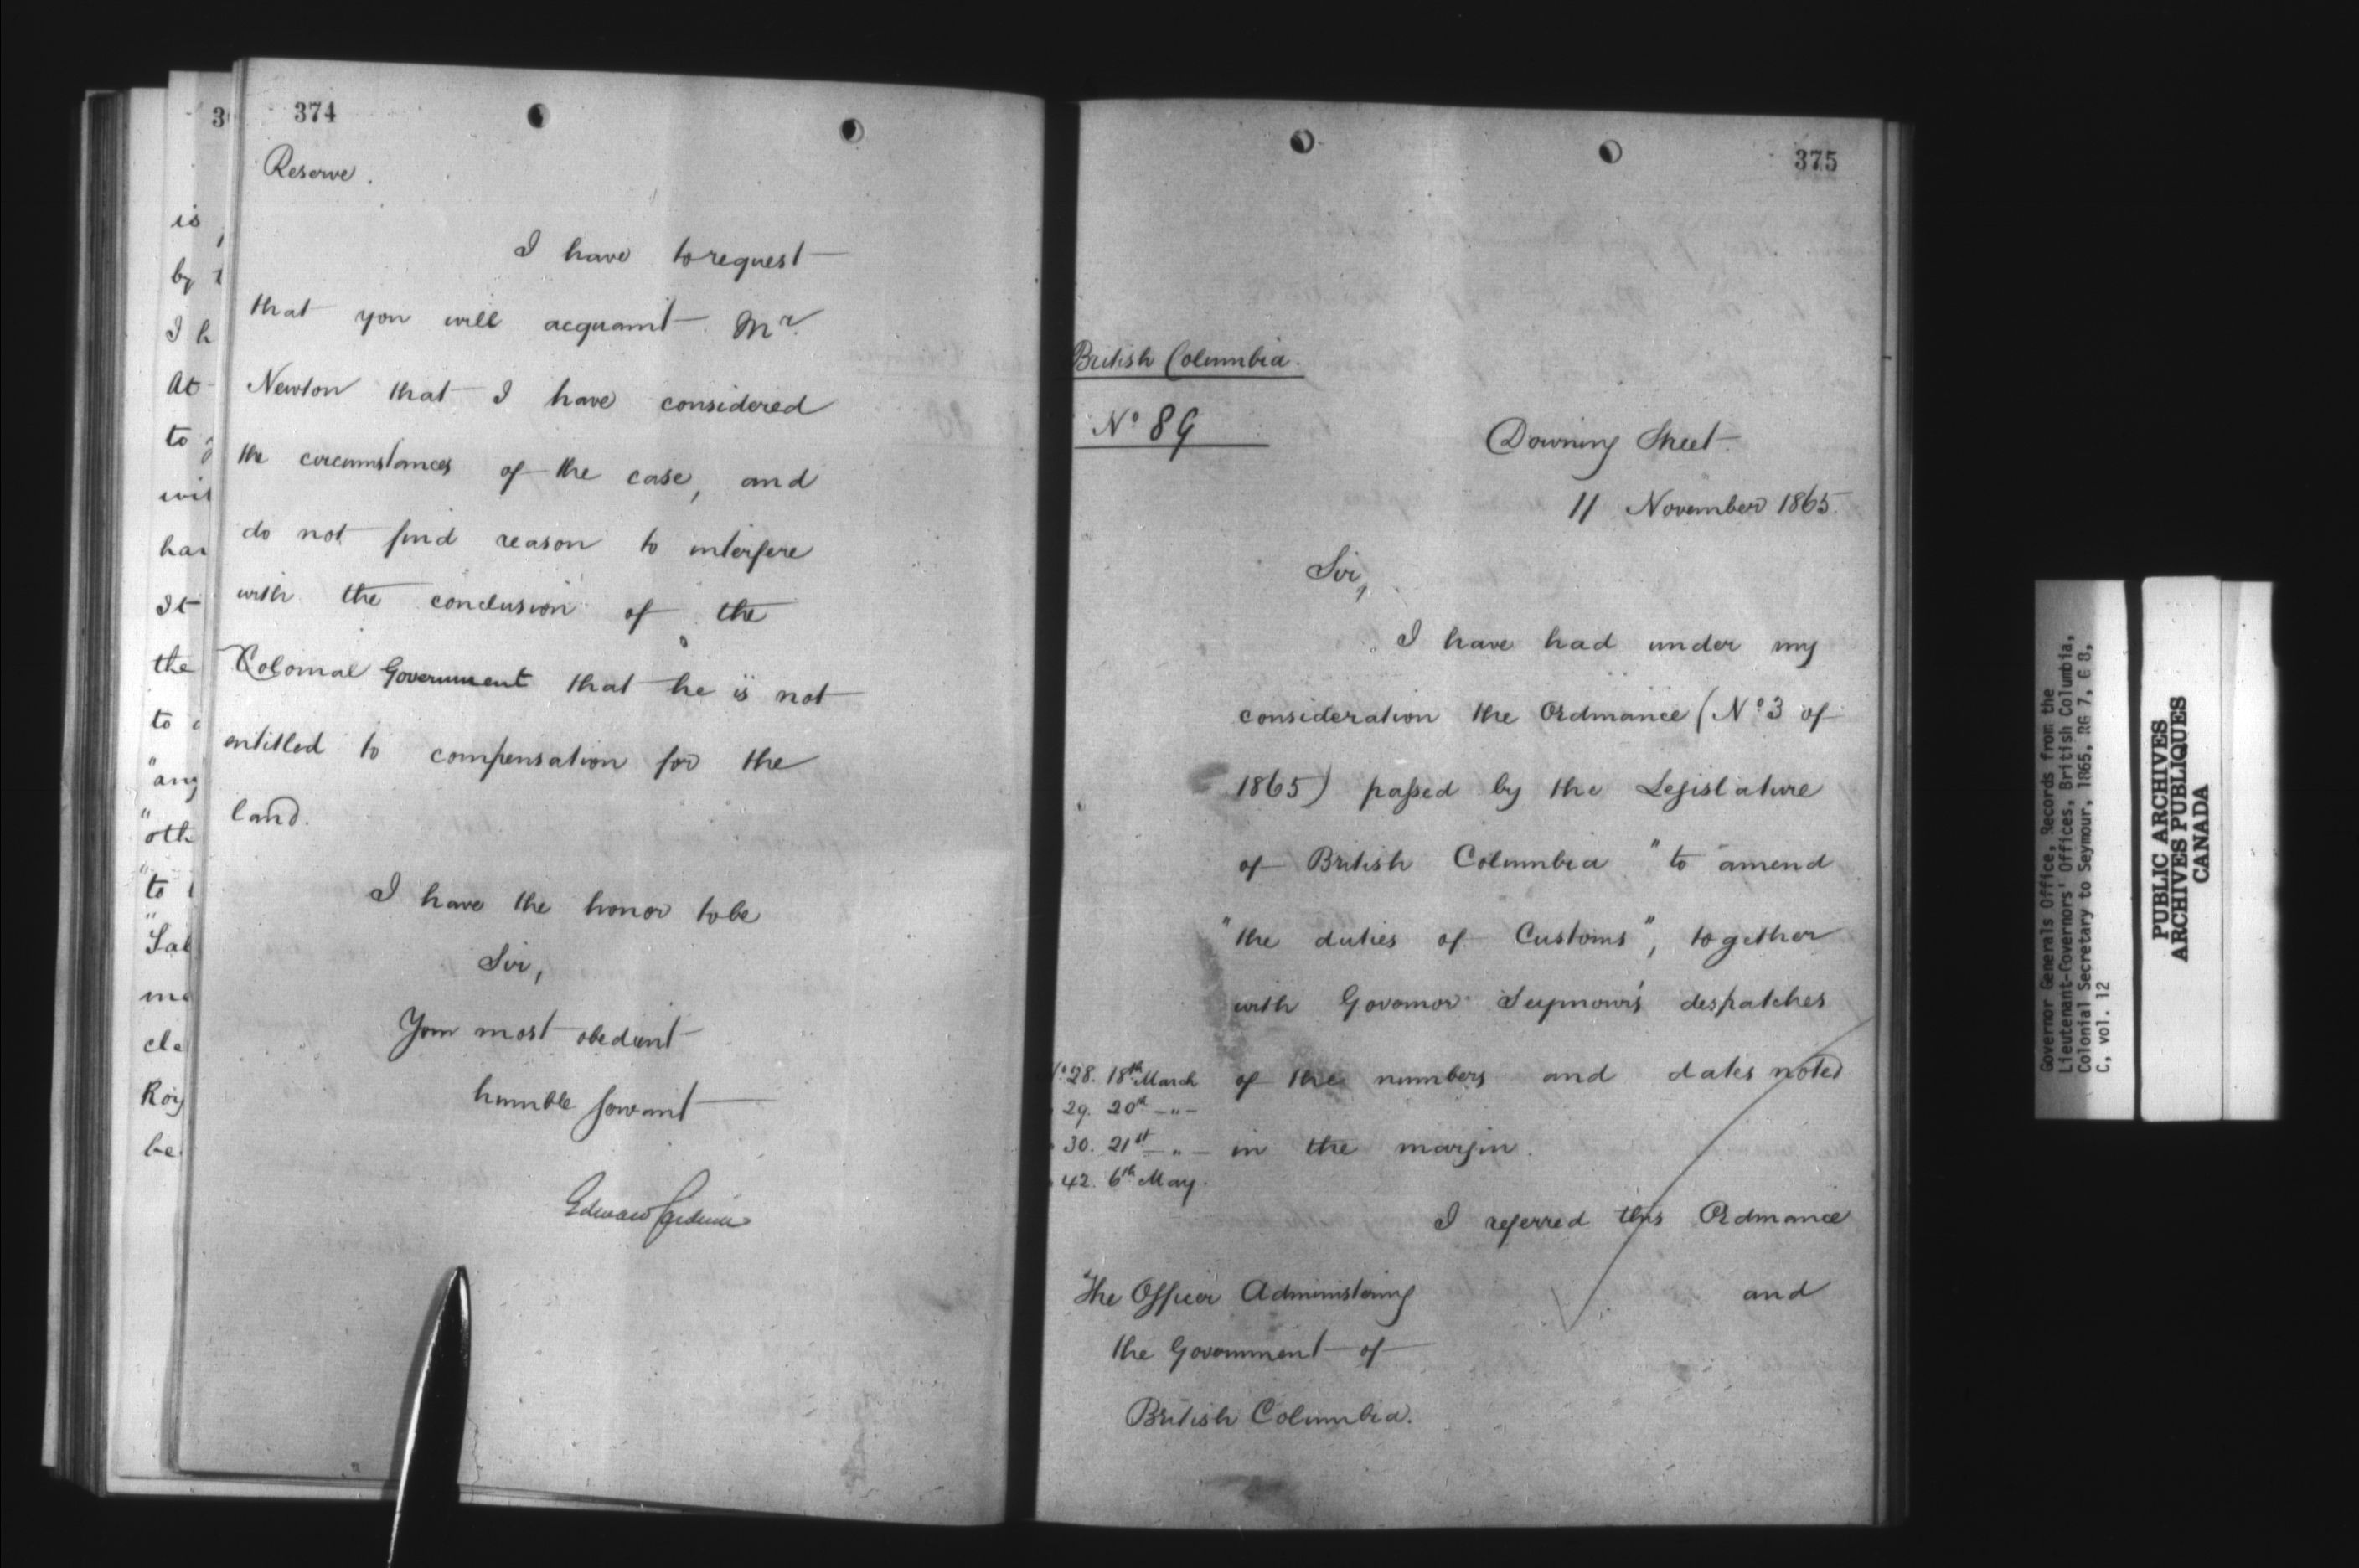 374
Reserve.
I have to request
that you will acquaint Mr.
Newton that I have considered
the circumstances of the case, and
do not find reason to interfere
with the conclusion of the
Colonial Government that he is not
entitled to compensation for the
land.
I have the honor to be
Sir,
Your most obedient
humble servant
Edward Cardwell
375
British Columbia.
No 89
Downing Street.
11 November 1865.
Sir,
I have had under my
consideration the Ordinance (No 3 of
1865) passed by the Legislature
of British Columbia "to amend
"the duties of Customs", together
with Governor Seymour's despatches
of the numbers and dates noted
in the margin.
No 28. 18th March
29. 20th -"-
30. 21st -"-
42. 6th May.
I referred this Ordinance
and
The Officer Administering
the Government of
British Columbia.
Governor Generals Office, Records from the
Lieutenant-Governors' Offices, British Columbia,
Colonial Secretary to Seymour, 1865, RG 7, G 8,
C, vol. 12
PUBLIC ARCHIVES
ARCHIVES PUBLIQUES
CANADA